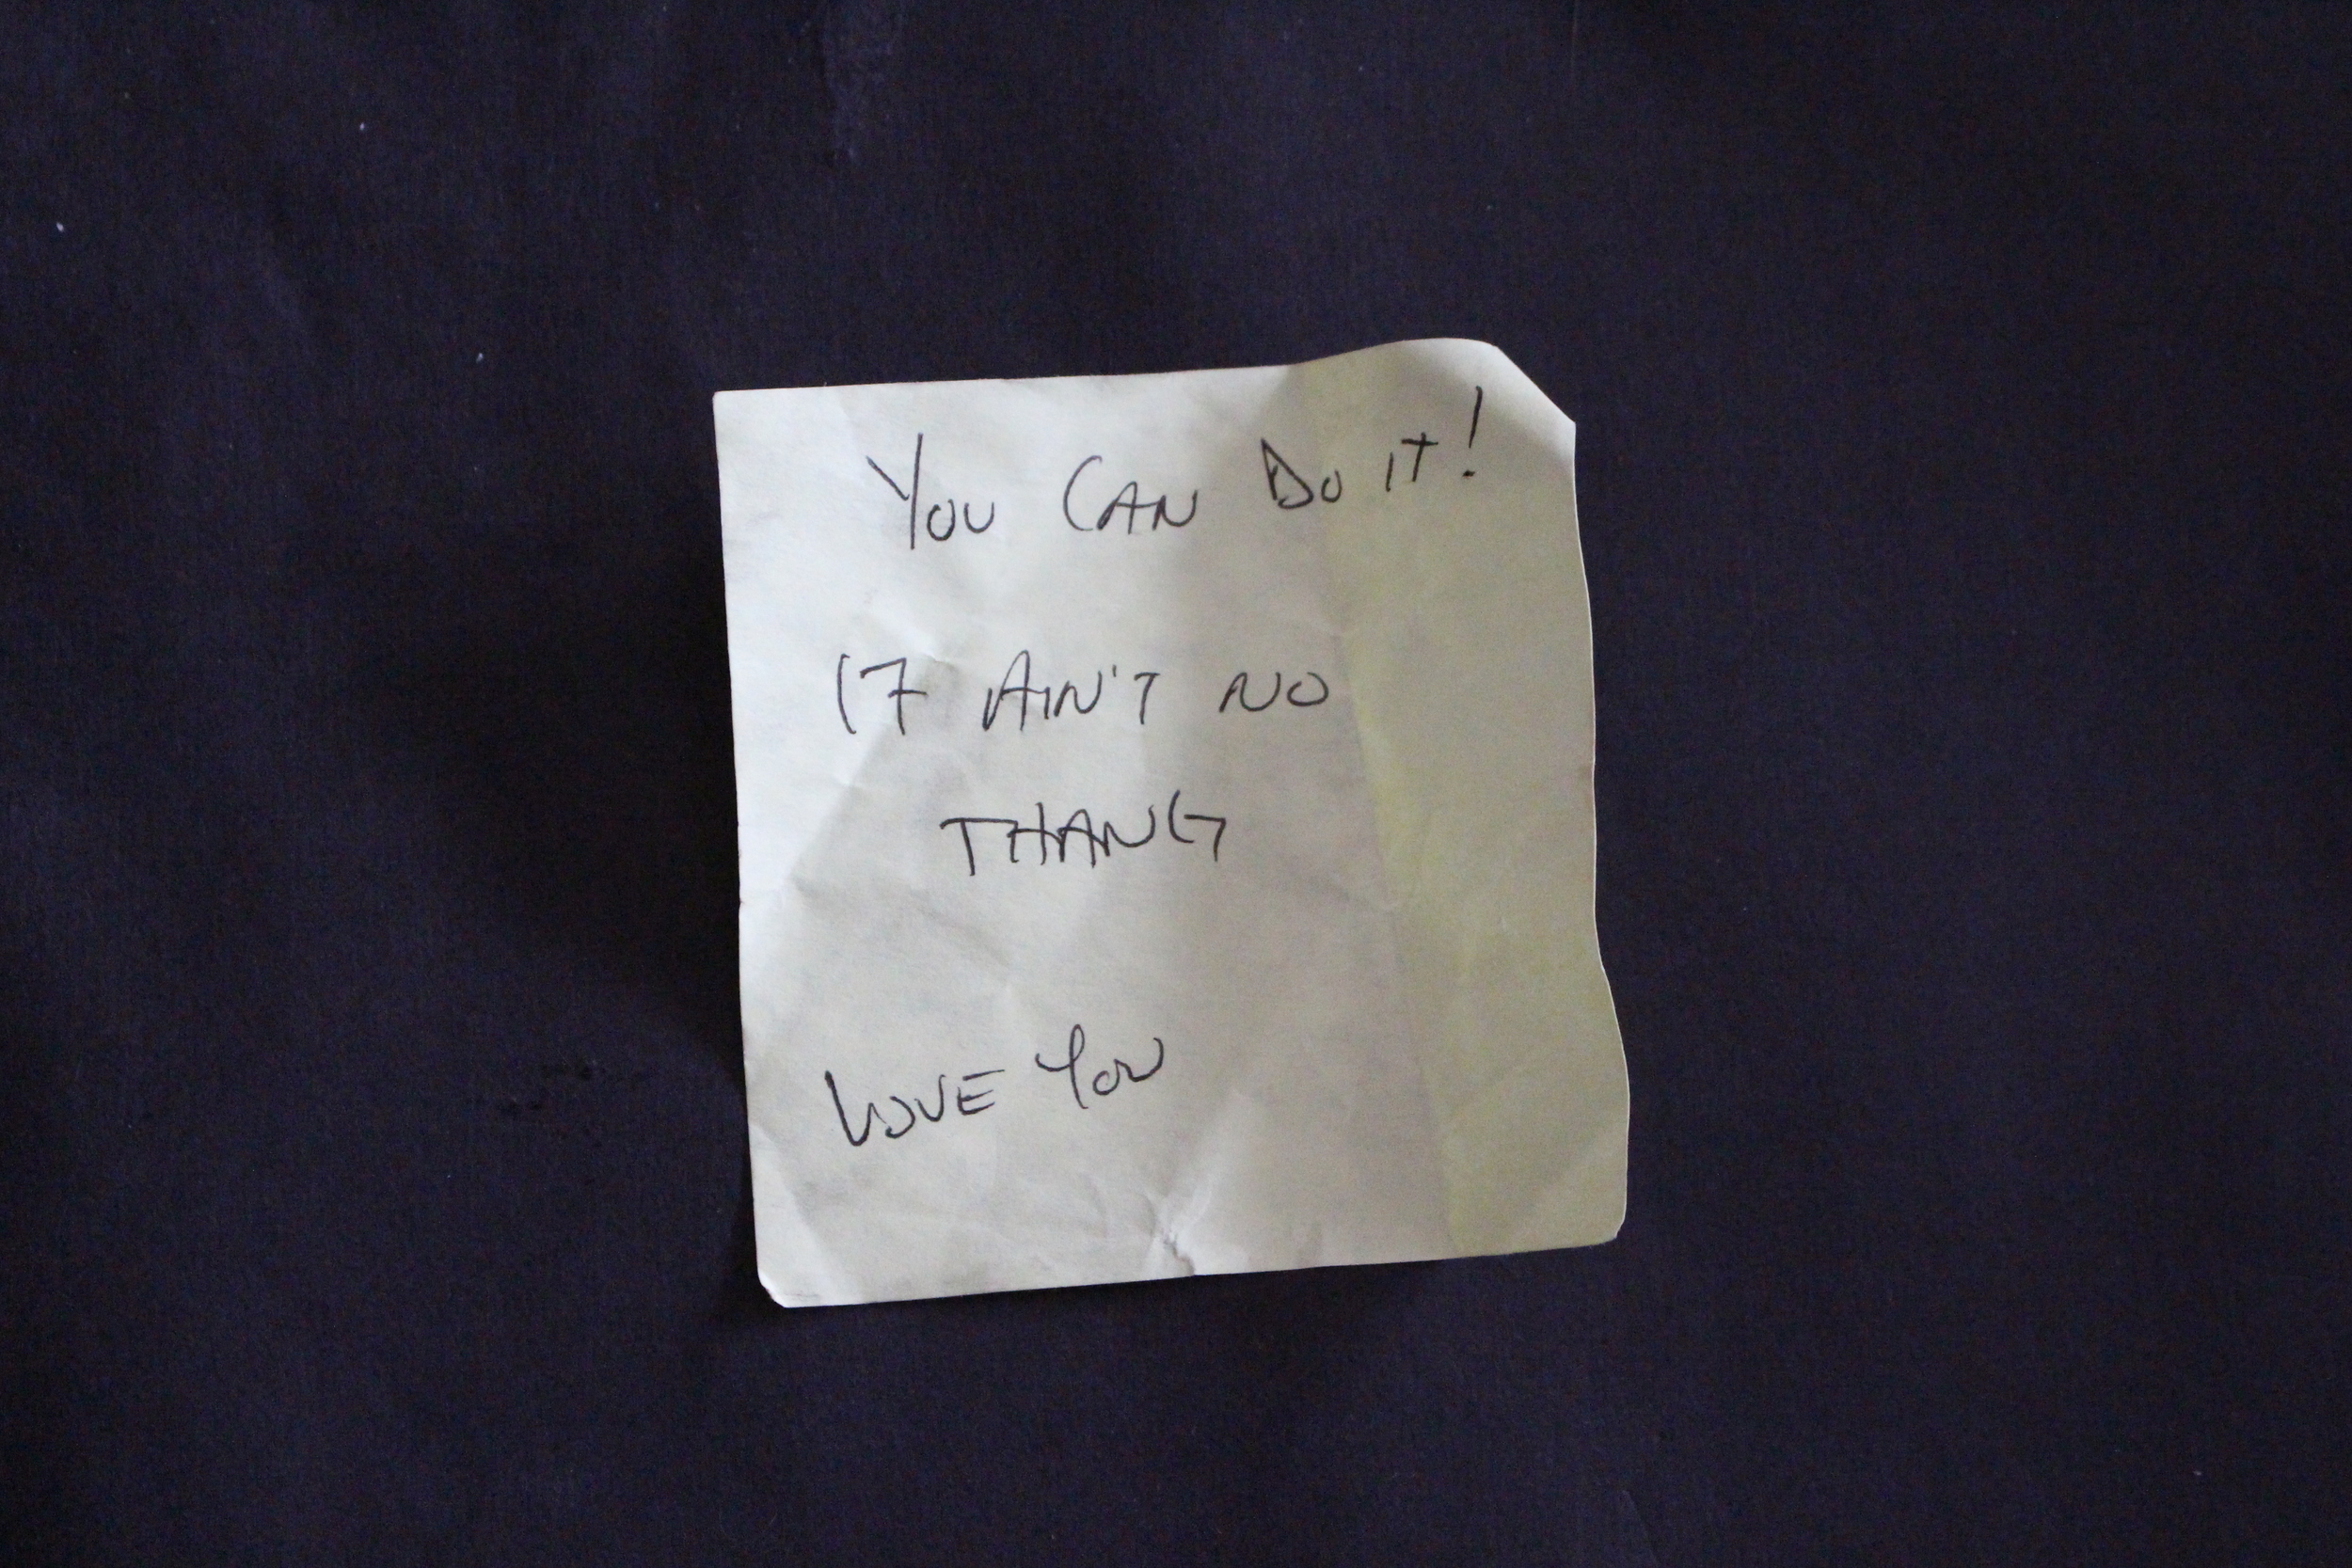 You CAN Do iT!
IT AIN'T NO
THANG
LOVE YOU